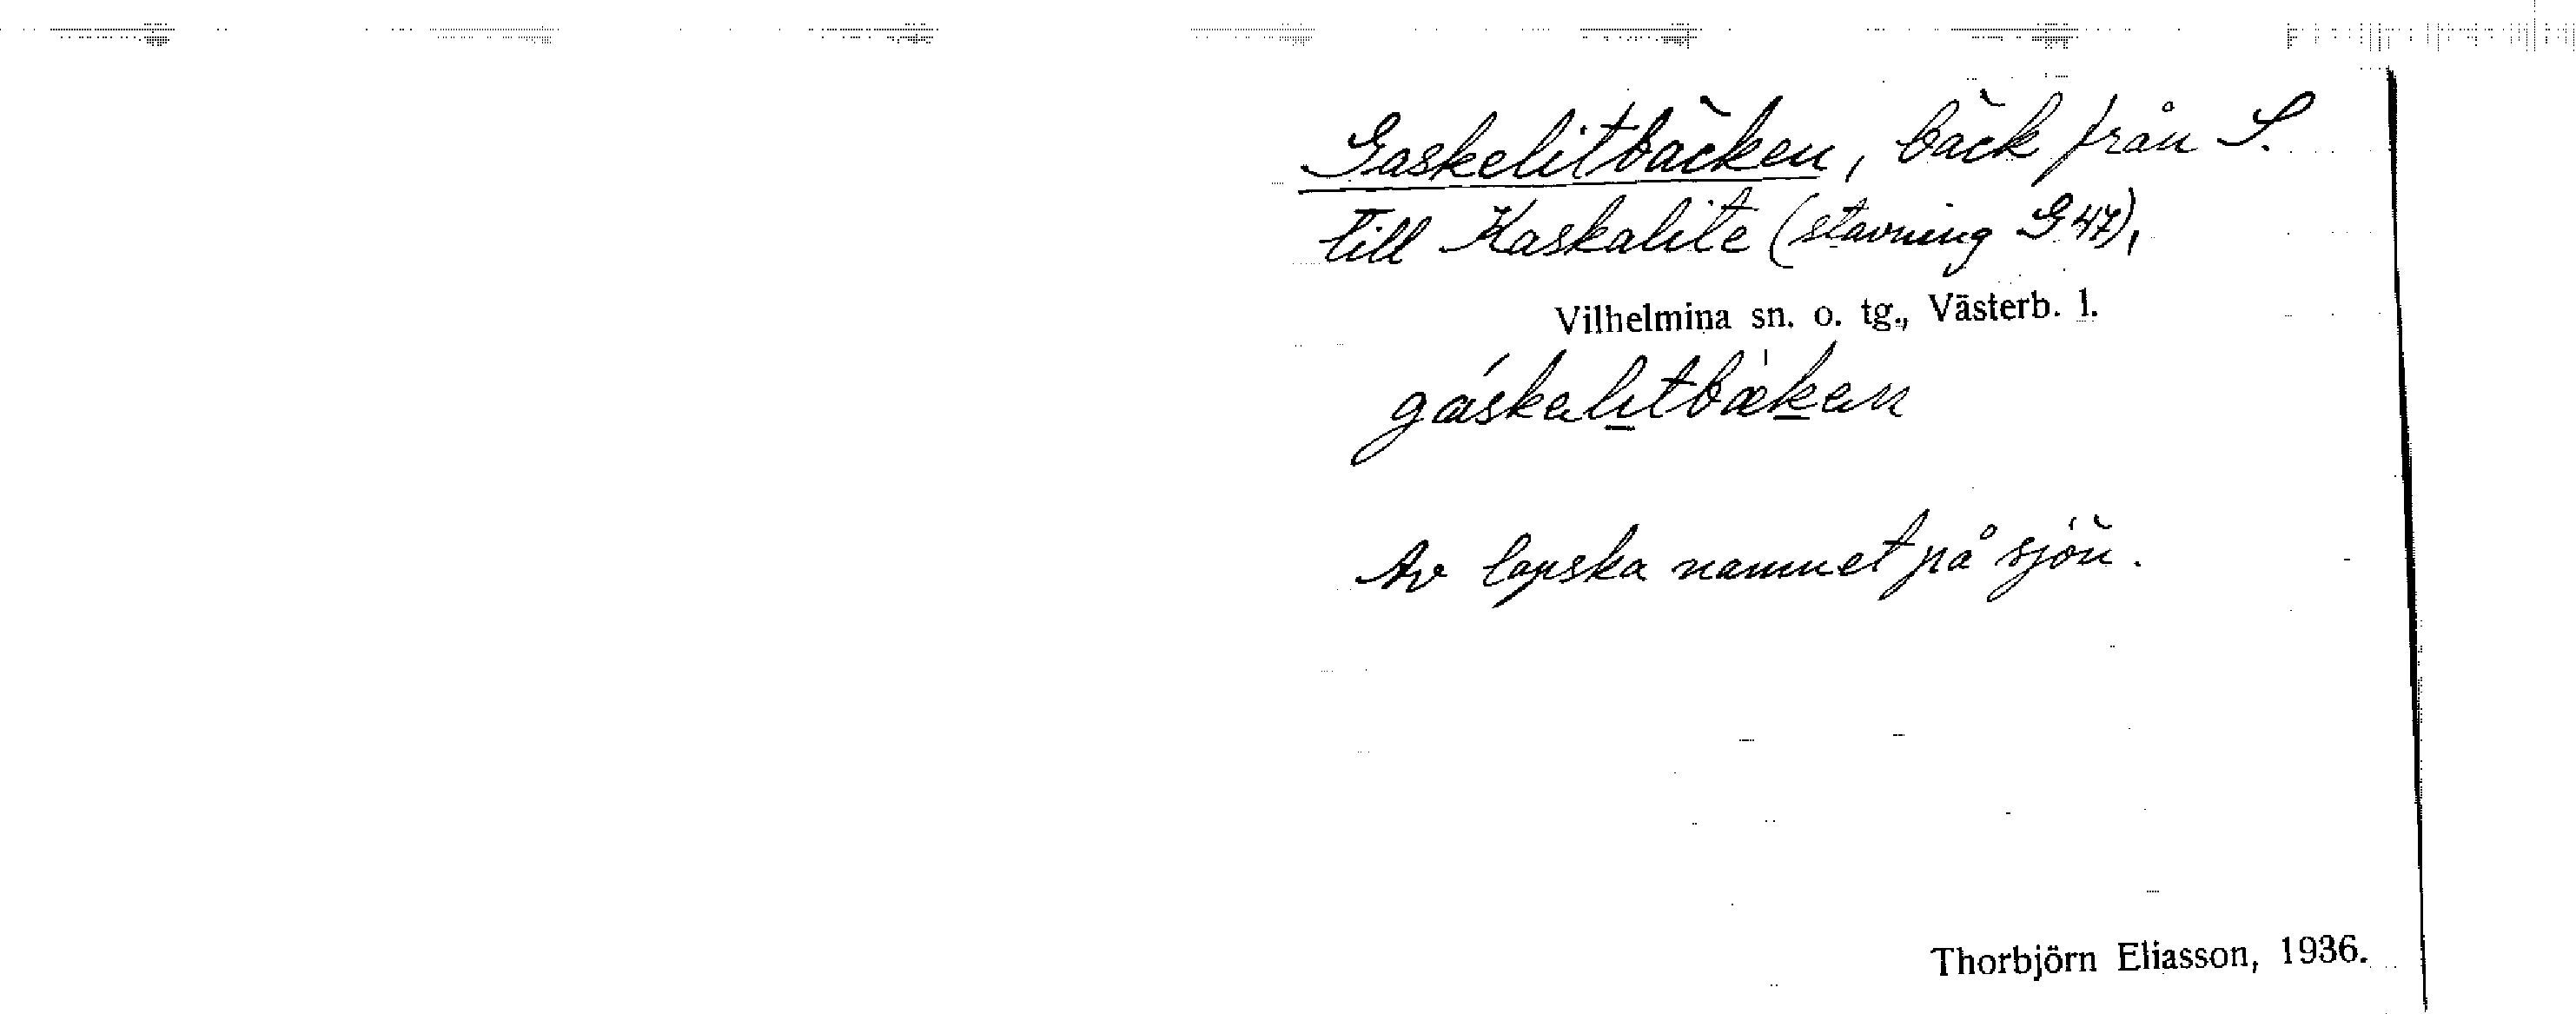 Gaskelitbäcken, bäck från S.
till Kaskalite (stavning G 47),
Vilhelmina sn. o. tg., Västerb. l.
gáskalitbæ̀kan
Av lapska namnet på sjön.
Thorbjörn Eliasson, 1936.